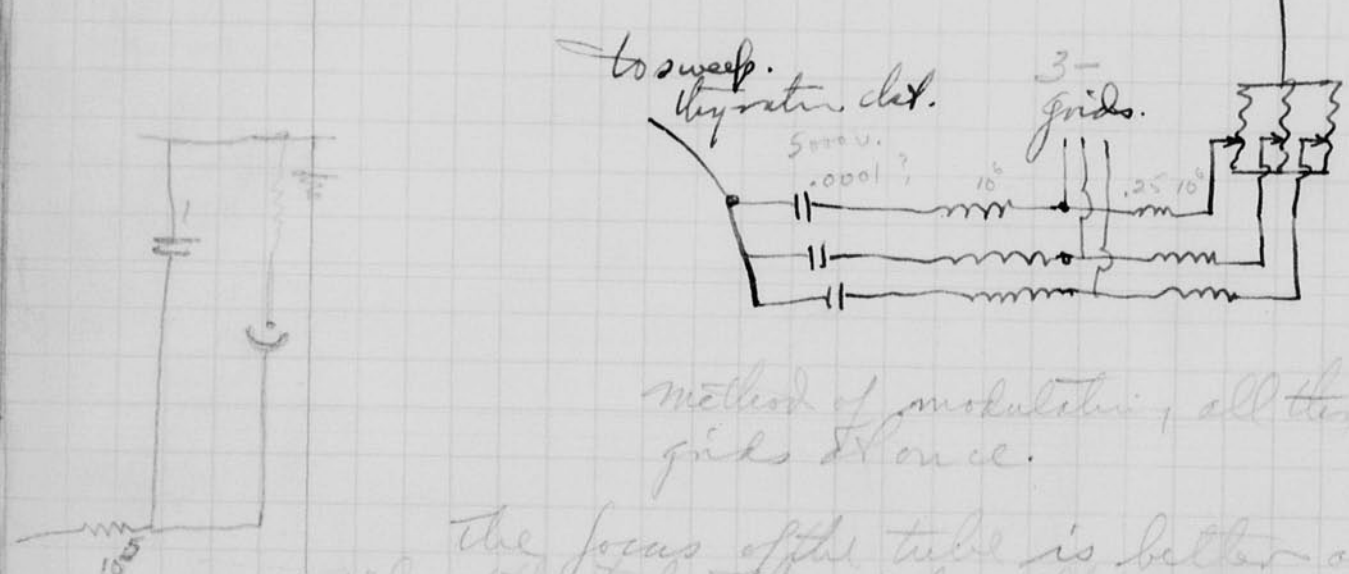 to sweep.
thyratron ckt.
3-
grids.
5000 v.
.0001 ?
10⁶
.25 10⁶
1
10⁵
method of modulating all
grids at once.
The focus of the tube is better